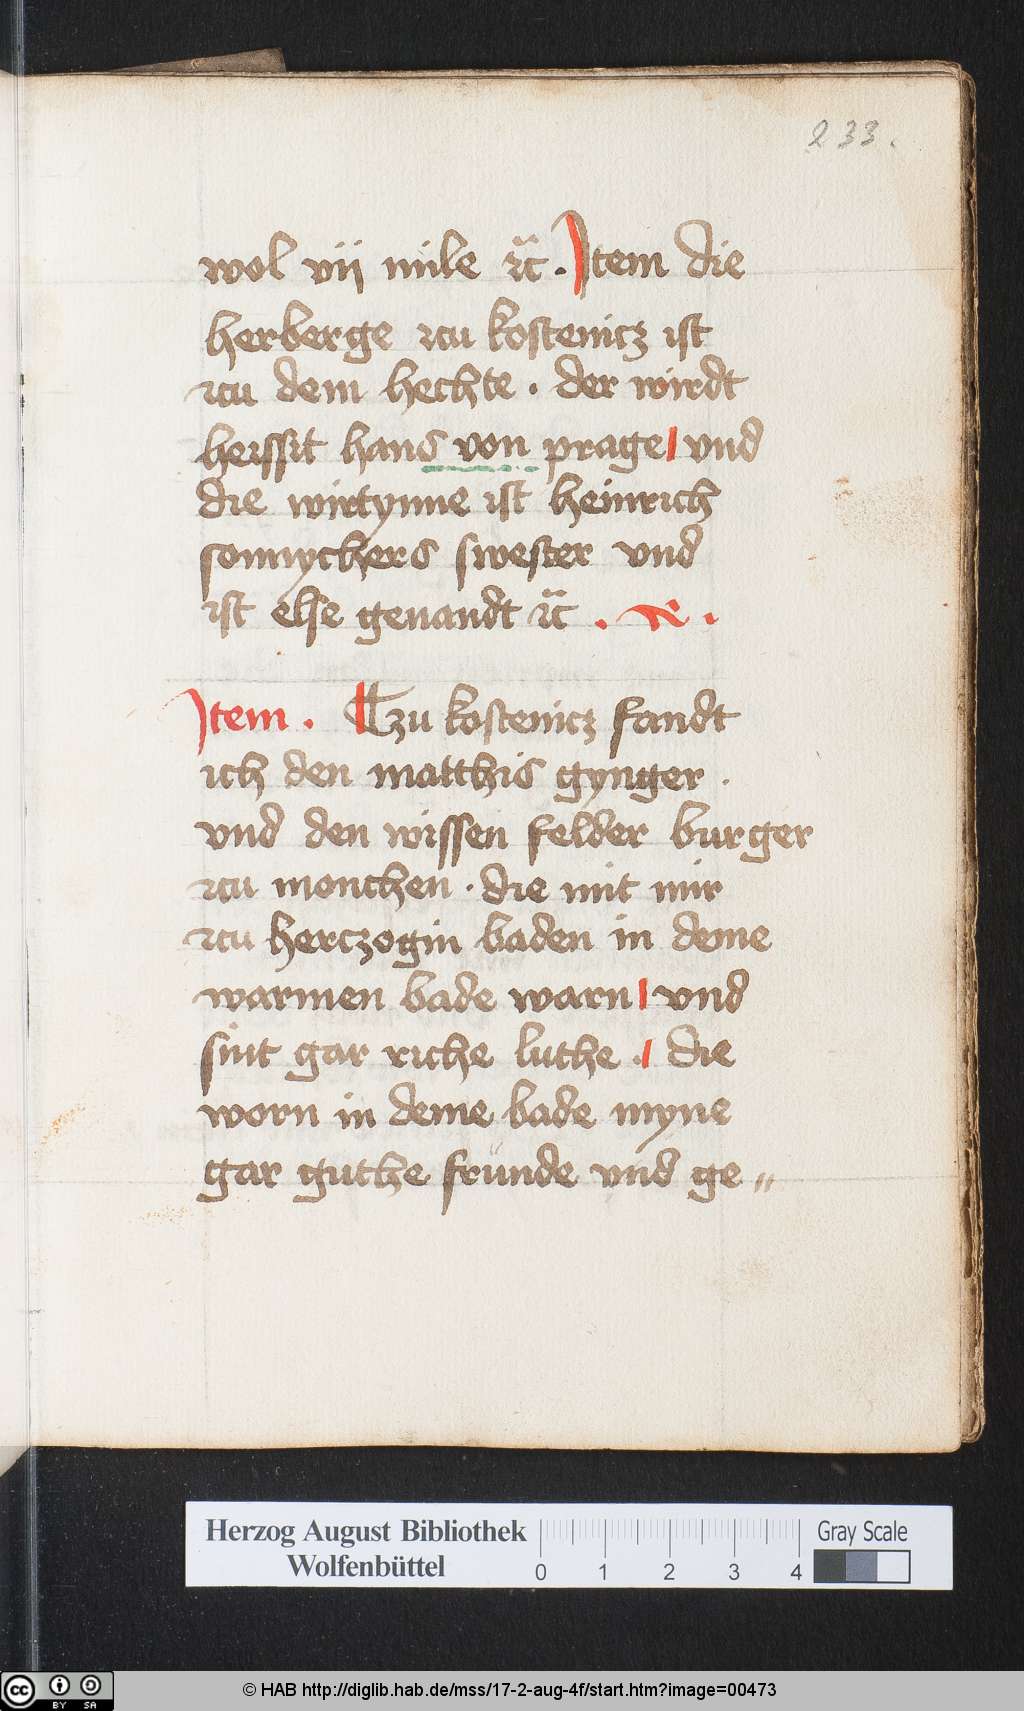 233.
wol vii mile ꝛc̃. Item die
herberge zcu kostenicz ist
zcu dem hechte . der wirdt
heissit hans von prage | vnd
die wirtynne ist heinrich
sonnychers swester vnd
ist else genandt ꝛc̃ .
Item . Tzu kostenicz fandt
ich den matthis gynger .
vnd den wissen felder burger
zcu monchen . die mit mir
zcu herczogin baden in deme
warmen bade warn | vnd
sint gar riche luthe . | die
worn in deme bade myne
gar guthe frunde vnd ge〃
Herzog August Bibliothek
Wolfenbüttel
0 1 2 3 4
Gray Scale
cc BY SA
© HAB http://diglib.hab.de/mss/17-2-aug-4f/start.htm?image=00473